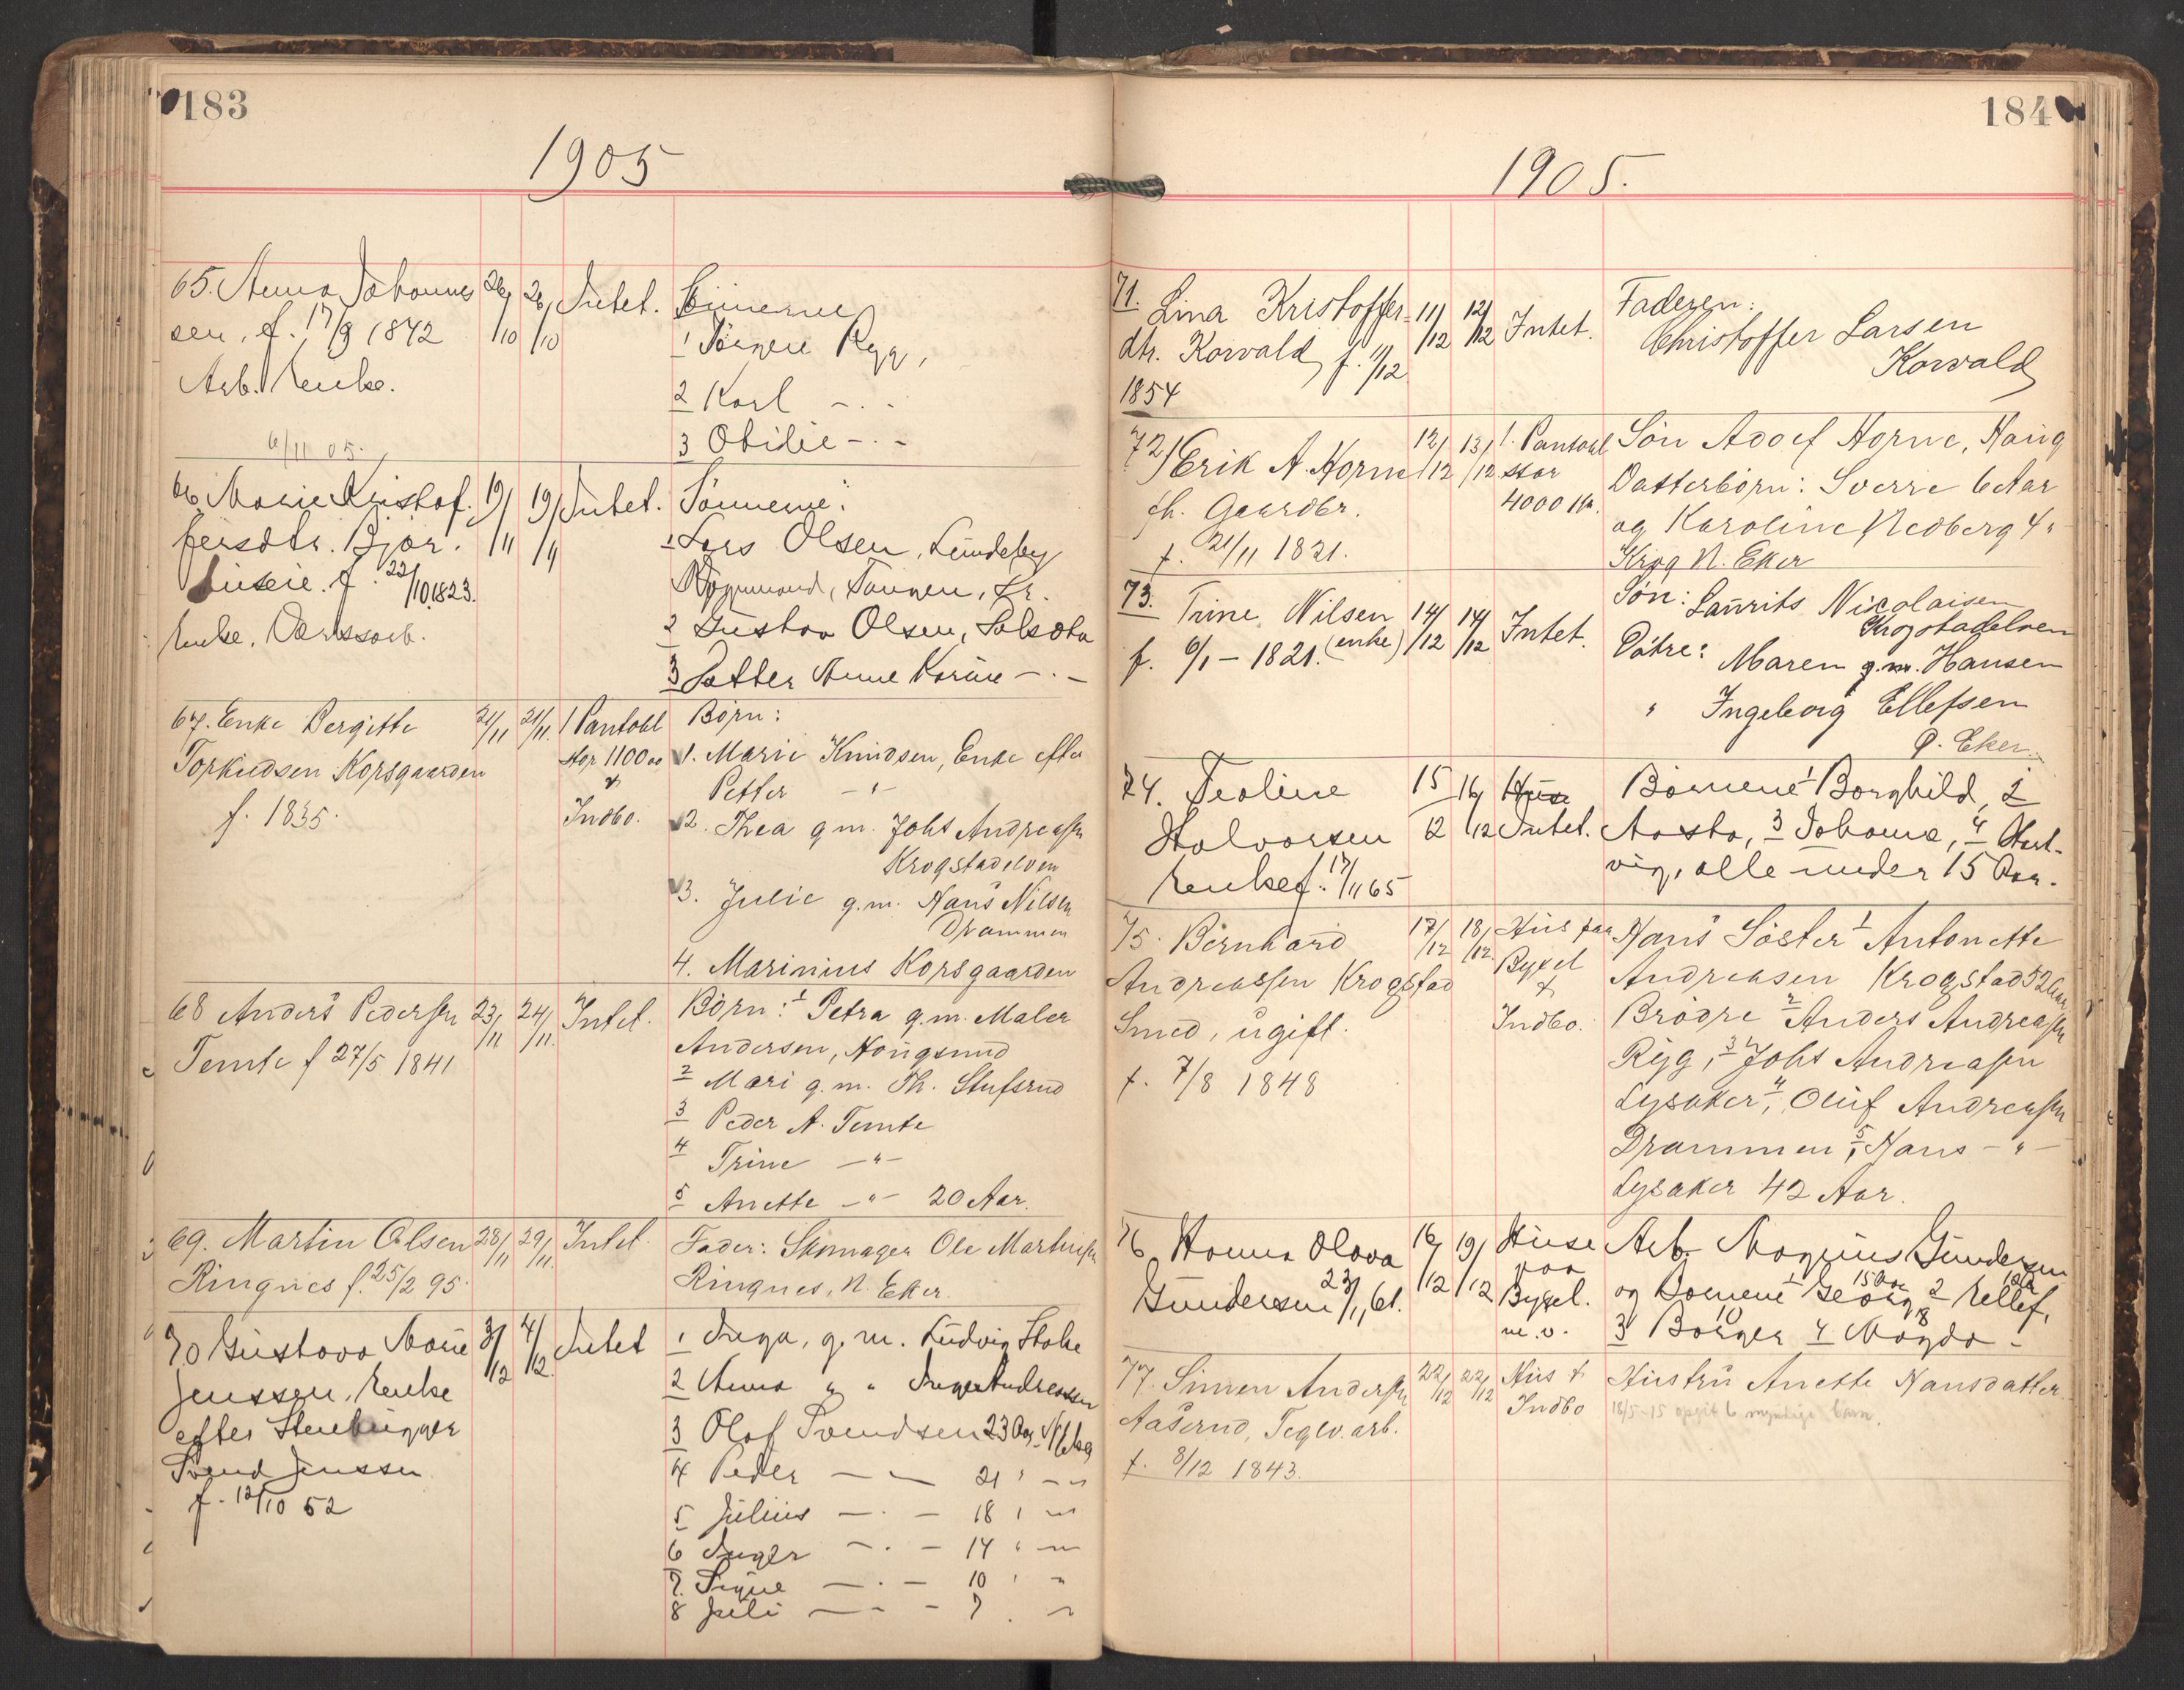 183
1905
65. Anna Johannes 26/10 26/10 Intet.
sen, f. 17/9 1842
Arb. Enke.
1 Jörgen Rygg,
2 Karl -〃-
3 Otilie -〃-
6/11 05.
66 Marie Kristof. 19/11 19/11 Intet. Sönnerne:
fersdtr. Björ.
f. 22/10 1823.
Enke.
1 Lars Olsen, Lundeby
2 Gustav Olsen,
3 Datter Anne Karine -〃-
67. Enke Bergitte 21/11 21/11 1 Pantobl
Torkildsen Korsgaarden stor 1100 oo
f. 1835. + Indbo.
Børn:
1. Marie Knudsen, Enke efter
Petter -〃-
2. Thea g.m. Johs Andreassen
Krogstadelven
3. Julie g.m. Hans Nilsen
Drammen
4. Marinius Korsgaarden
68 Anders Pedersen 23/11 24/11 Intet. Børn: 1 Petra g.m. Maler
Temte f 27/5 1841 Andersen, Hougsund
2 Mari g.m. Th. Stufsrud
3 Peder A. Temte
4 Trine -〃-
5 Anette -〃- 20 Aar.
69. Martin Olsen 28/11 29/11 Intet. Fader: Skomager Ole Martinsen
Ringnes f. 25/2 95. Ringnes, N. Eker.
70 Gustava Marie 3/12 4/12 Intet 1 Inga, g.m. Ludvig
Jenssen, Enke 2 Anna 〃 〃 Inger Andreassen
efter Stenhugger 3 Olaf Svendsen 23 Aar
Svend Jenssen 4 Peder - - 21 〃 -〃-
f. 12/10 52 5 Julius - - 18 〃 -〃-
6 Inger - - 14 〃 -〃-
7. Signe - - 10 〃 -〃-
8 Juli - - 7 〃 -〃-
184
1905.
71. Lina Kristoffer- 11/12 12/12 Intet. Faderen:
dtr. Korvald f. 11/12 Christoffer Larsen
1854 Korvald
72/ Erik A. Horne 12/12 13/12 1. Pantobl Søn Adolf Horne, Haug
fh. Gaardbr. stor Datterbørn: Sverre 6 Aar
f. 21/11 1821. 4000 Kr. og Karoline Nedberg 4〃
Krog N. Eker
73. Trine Nilsen 14/12 14/12 Intet. Søn: Laurits Nicolaisen
f. 6/1 - 1821. (enke) Krogstadelven
Døtre: Maren g.m. Hansen
〃 Ingeborg Ellefsen
Ø. Eker.
74. Teoline 15/12 16/12 Huse Börnene 1 Borghild, 2
Halvorsen Intet. Aasta, 3 Johanna, 4 Hart-
Enke f. 17/11 65 vig, alle under 15 Aar.
75. Bernhard 17/12 18/12 Hus paa Hans Søster 1 Antonette
Andreassen Krogstad Bygsel Andreasen Krogstad 52 Aar
Smed, ugift. + Brødre 2 Anders Andreassen
f. 7/8 1848 Indbo. Ryg, 3 Johs Andreassen
Lysaker, 4 Oluf Andreassen
Drammen, 5 Hans -〃-
Lysaker 42 Aar.
76 Hanna Olava 16/12 19/12 Huse Arb. Magnus Gundersen
Gundersen 23/1, 61. paa og Börnene 1 Georg 15 Aar 2 Ellef, 12
Bygsel. 3 Borger 10 4 Magda 8
m.v.
77. Simen Andersen 22/12 22/12 Hus + Hustru Anette Hansdatter
Aaserud, Teglv. arb. Indbo 18/5-15 opgit 6 myndige barn.
f. 8/12 1843.